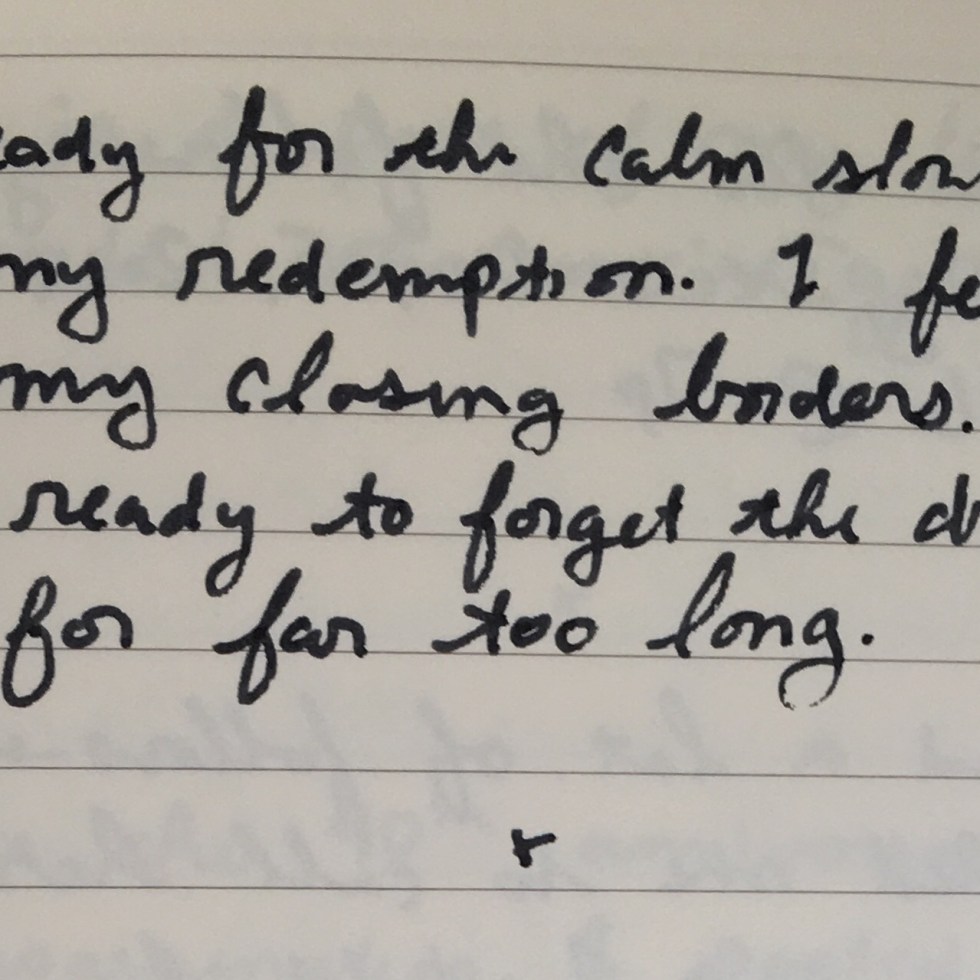 eady for the calm slow
my redemption. I fe
my closing borders.
ready to forget the d
for far too long.
r